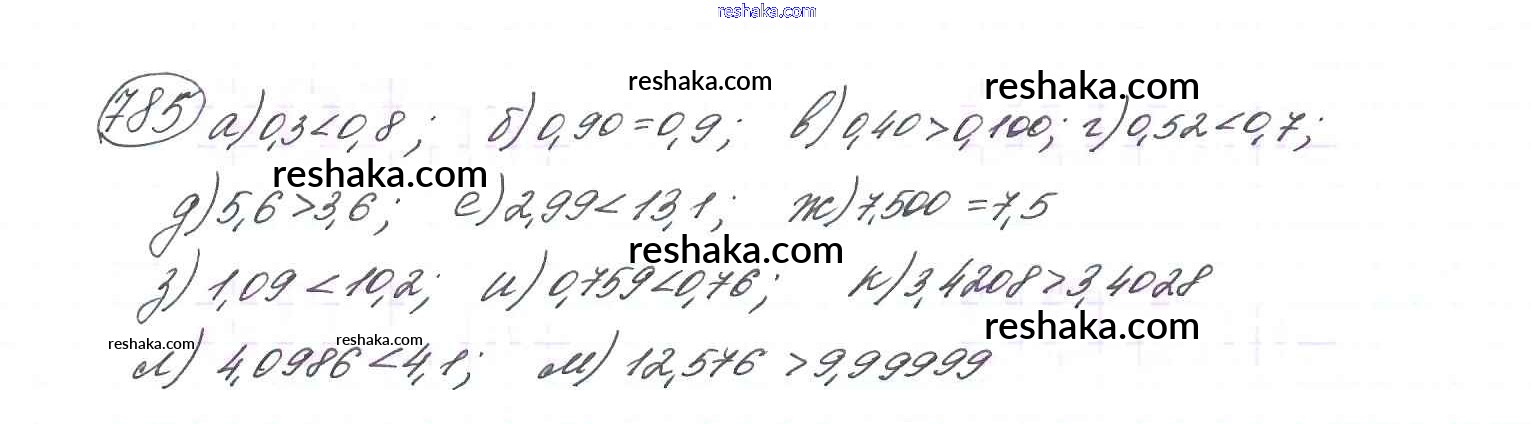 reshaka.com
785 а) 0,3<0,8; б) 0,90=0,9; в) 0,40>0,100; г) 0,52<0,7;
reshaka.com reshaka.com
reshaka.com
д) 5,6>3,6; е) 2,99<13,1; ж) 7,500=7,5
reshaka.com
з) 1,09<10,2; и) 0,759<0,76; к) 3,4208>3,4028
reshaka.com
reshaka.com reshaka.com
л) 4,0986<4,1; м) 12,576>9,99999